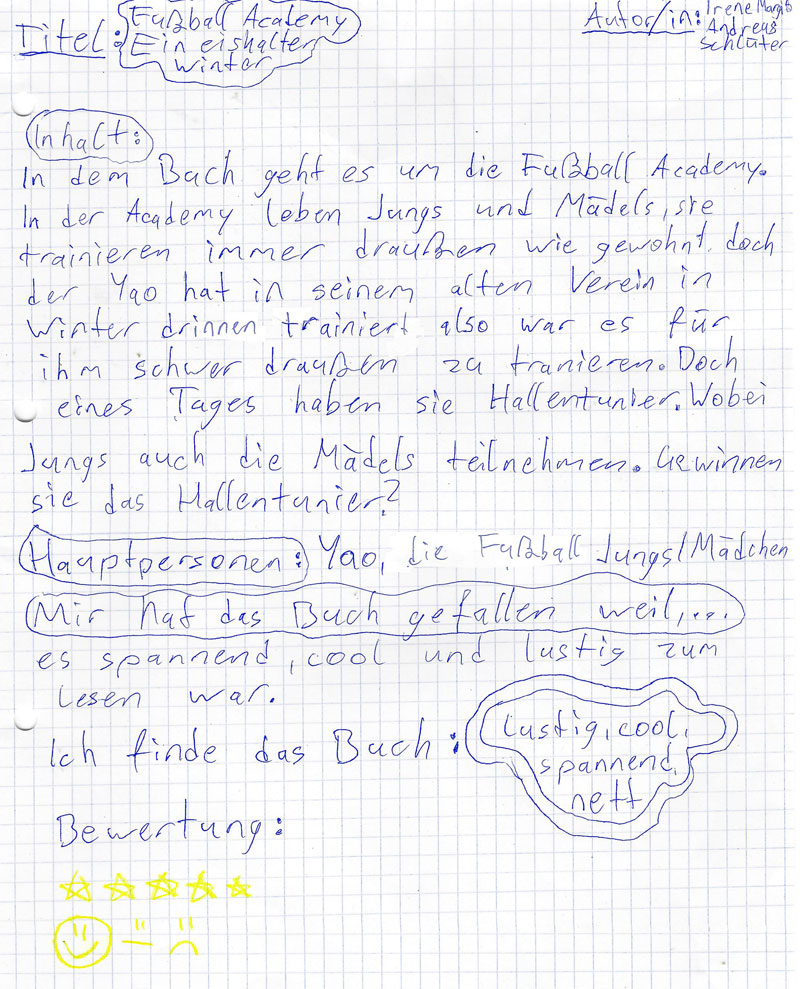 Titel: Fußball Academy
Ein eishalter
winter
Autor/in: Irene Margib
Andreas
Schlüter
Inhalt:
In dem Buch geht es um die Fußball Academy.
In der Academy leben Jungs und Mädels, sie
trainieren immer draußen wie gewohnt, doch
der Yao hat in seinem alten Verein in
Winter drinnen trainiert also war es für
ihm schwer draußen zu tranieren. Doch
eines Tages haben sie Hallentunier. Wobei
Jungs auch die Mädels teilnehmen. Gewinnen
sie das Hallentunier?
Hauptpersonen: Yao, die Fußball Jungs/Mädchen
Mir hat das Buch gefallen weil,...
es spannend, cool und lustig zum
lesen war.
Ich finde das Buch: lustig, cool,
spannend,
nett
Bewertung: